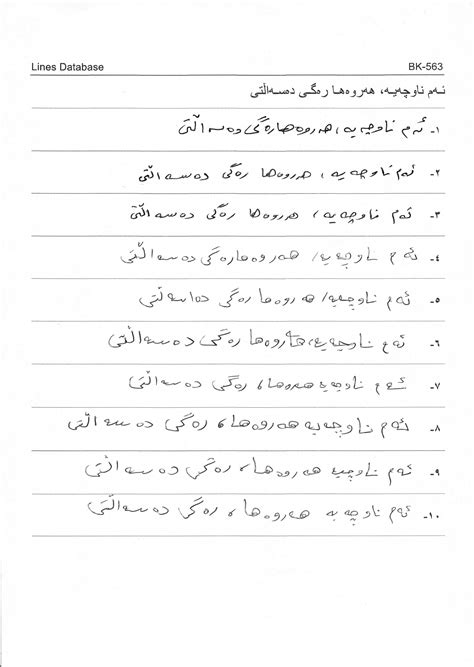 Lines Database BK-563
ئەم ناوچەیە، هەروەها رەگی دەسەاڵتی
١- ئەم ناوچە یە، هەروەهارەگی دەسە اڵتی
٢- ئەم ناوچە یە، هەروەها رەگی دەسە اڵتی
٣- ئەم ناوچەیە، هەروەها رەگی دەسە اڵتی
٤- ئەم ناوچەیە/ هەروەهارەگی دەسەاڵتی
٥- ئەم ناوچەیە/ هەروەها رەگی دەاسەاڵتی
٦- ئەم ناوچەیە، هەروەها رەگی دەسەاڵتی
٧- ئەم ناوچەیە هەروەها، رەگی دەسەاڵتی
٨- ئەم ناوچەیە هەروەها، رەگی دەسەاڵتی
٩- ئەم ناوچەیە هەروەها، رەگی دەسەاڵتی
١٠- ئەم ناوچە یە هەروەها، رەگی دەسەاڵتی